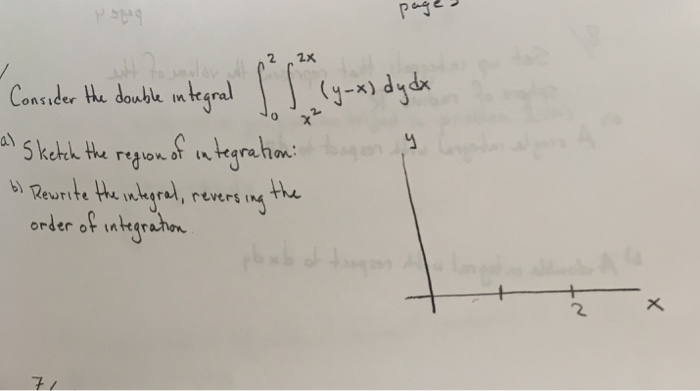 page
Consider the double integral ∫₀² ∫ₓ²²ˣ (y-x) dy dx
a) Sketch the region of integration:
b) Rewrite the integral, reversing the
order of integration.
y
2
x
7/